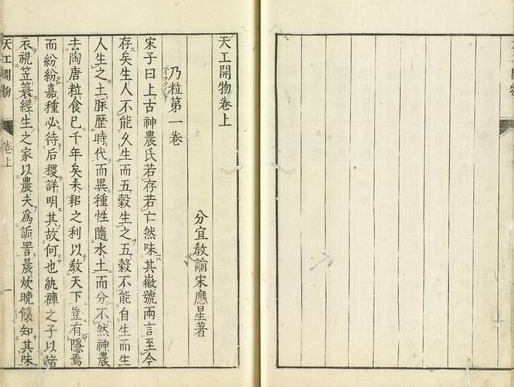 天工開物卷上
分宜教諭宋應星著
乃粒第一卷
宋子曰上古神農氏若存若亡然味其徽號兩言至今
存矣生人不能久生而五穀生之五穀不能自生而生
人生之土脈歷時代而異種性隨水土而分不然神農
去陶唐粒食已千年矣耒耜之利以教天下豈有隱焉
而紛紛嘉種必待后稷詳明其故何也紈褲之子以赭
衣視笠蓑經生之家以農夫為詬詈晨炊晚饟知其味
天工開物
卷上
一